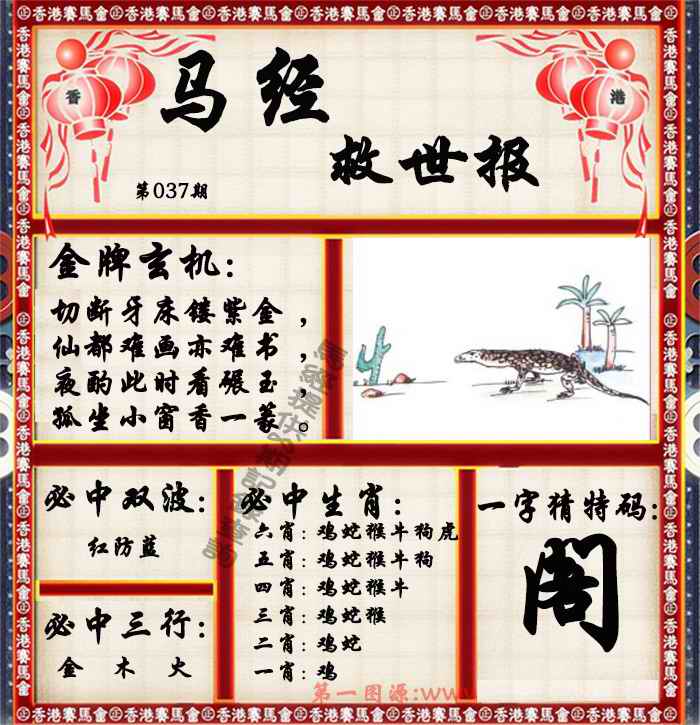 香港賽馬會
香 港
马经
救世报
第037期
金牌玄机：
切断牙床镂紫金，
仙都难画亦难书，
夜酌此时看碾玉，
孤坐小窗香一篆。
必中双波：
红防蓝
必中三行：
金 木 火
必中生肖：
六肖：鸡蛇猴牛狗虎
五肖：鸡蛇猴牛狗
四肖：鸡蛇猴牛
三肖：鸡蛇猴
二肖：鸡蛇
一肖：鸡
一字猜特码：
阁
第一图源:www